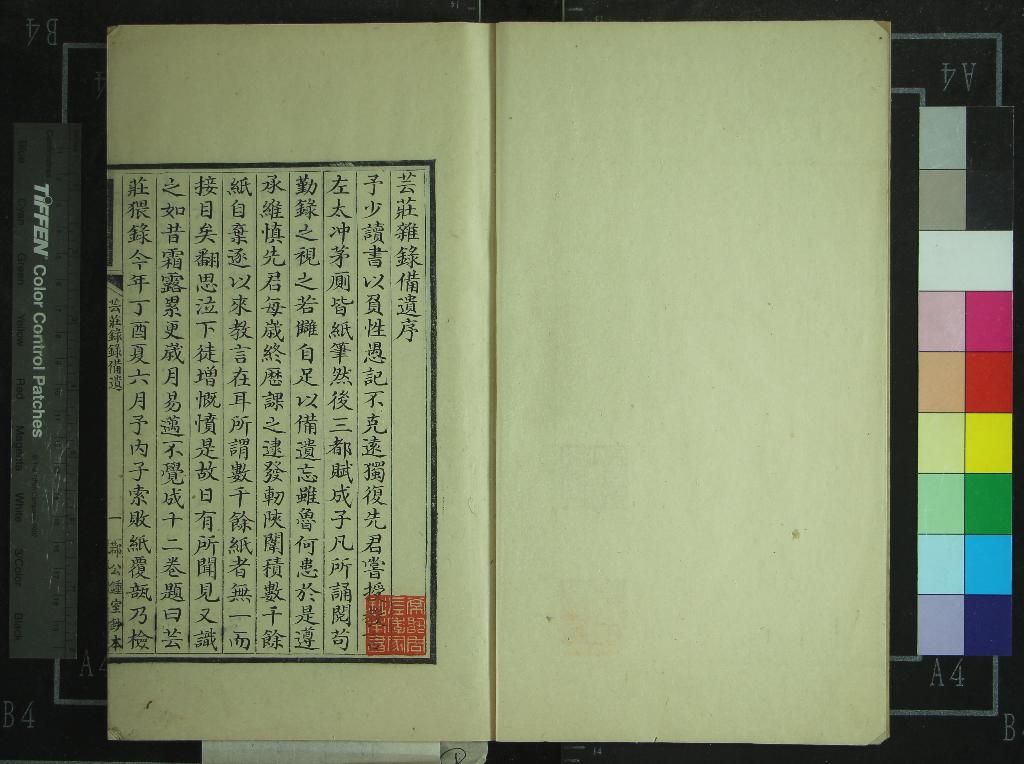 芸莊雜錄備遺序
予少讀書以貟性愚記不克遠獨復先君嘗授
左太冲茅厠皆紙筆然後三都賦成子凡所誦閱苟
勤錄之視之若雖自足以備遺忘雖魯何患於是遵
承維慎先君每歳終厯課之逮發軔陜闈積數千餘
紙自棄逐以來教言在耳所謂數千餘紙者無一而
接目矣翻思泣下徒增慨憤是故日有所聞見又識
之如昔霜露累更歳月易邁不覺成十二卷題曰芸
莊猥錄今年丁酉夏六月予內子索敗紙覆瓿乃檢
芸莊錄錄備遺
一
鄭公鍾室鈔本
TIFFEN Color Control Patches
Blue Cyan Green Yellow Red Magenta White 3/Color Black
B4
A4
A4
A4
B4
A4
B